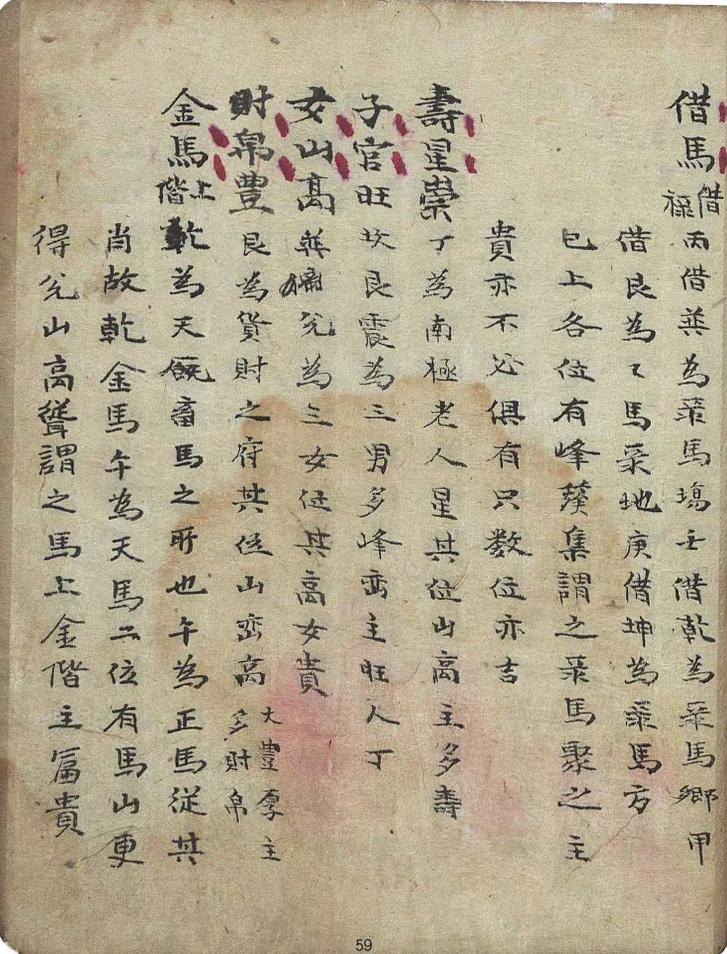 借馬借祿丙借巽為祿馬塲壬借乾為祿馬鄉甲
借艮為祿馬祿地庚借坤為祿馬方
已上各位有峰簇集謂之祿馬聚之主
貴亦不必俱有只数位亦吉
壽星崇丁為南極老人星其位山高主多壽
子官旺坎艮震為三男多峰峦主旺人丁
女山高巽離兌為三女位其高女貴
財帛豊艮為貨財之府其位山峦高大豊厚主多財帛
金馬上偕乾為天廐畜馬之所也午為正馬從其
肖故乾金馬午為天馬二位有馬山更
得兌山高聳謂之馬上金偕主富貴
59